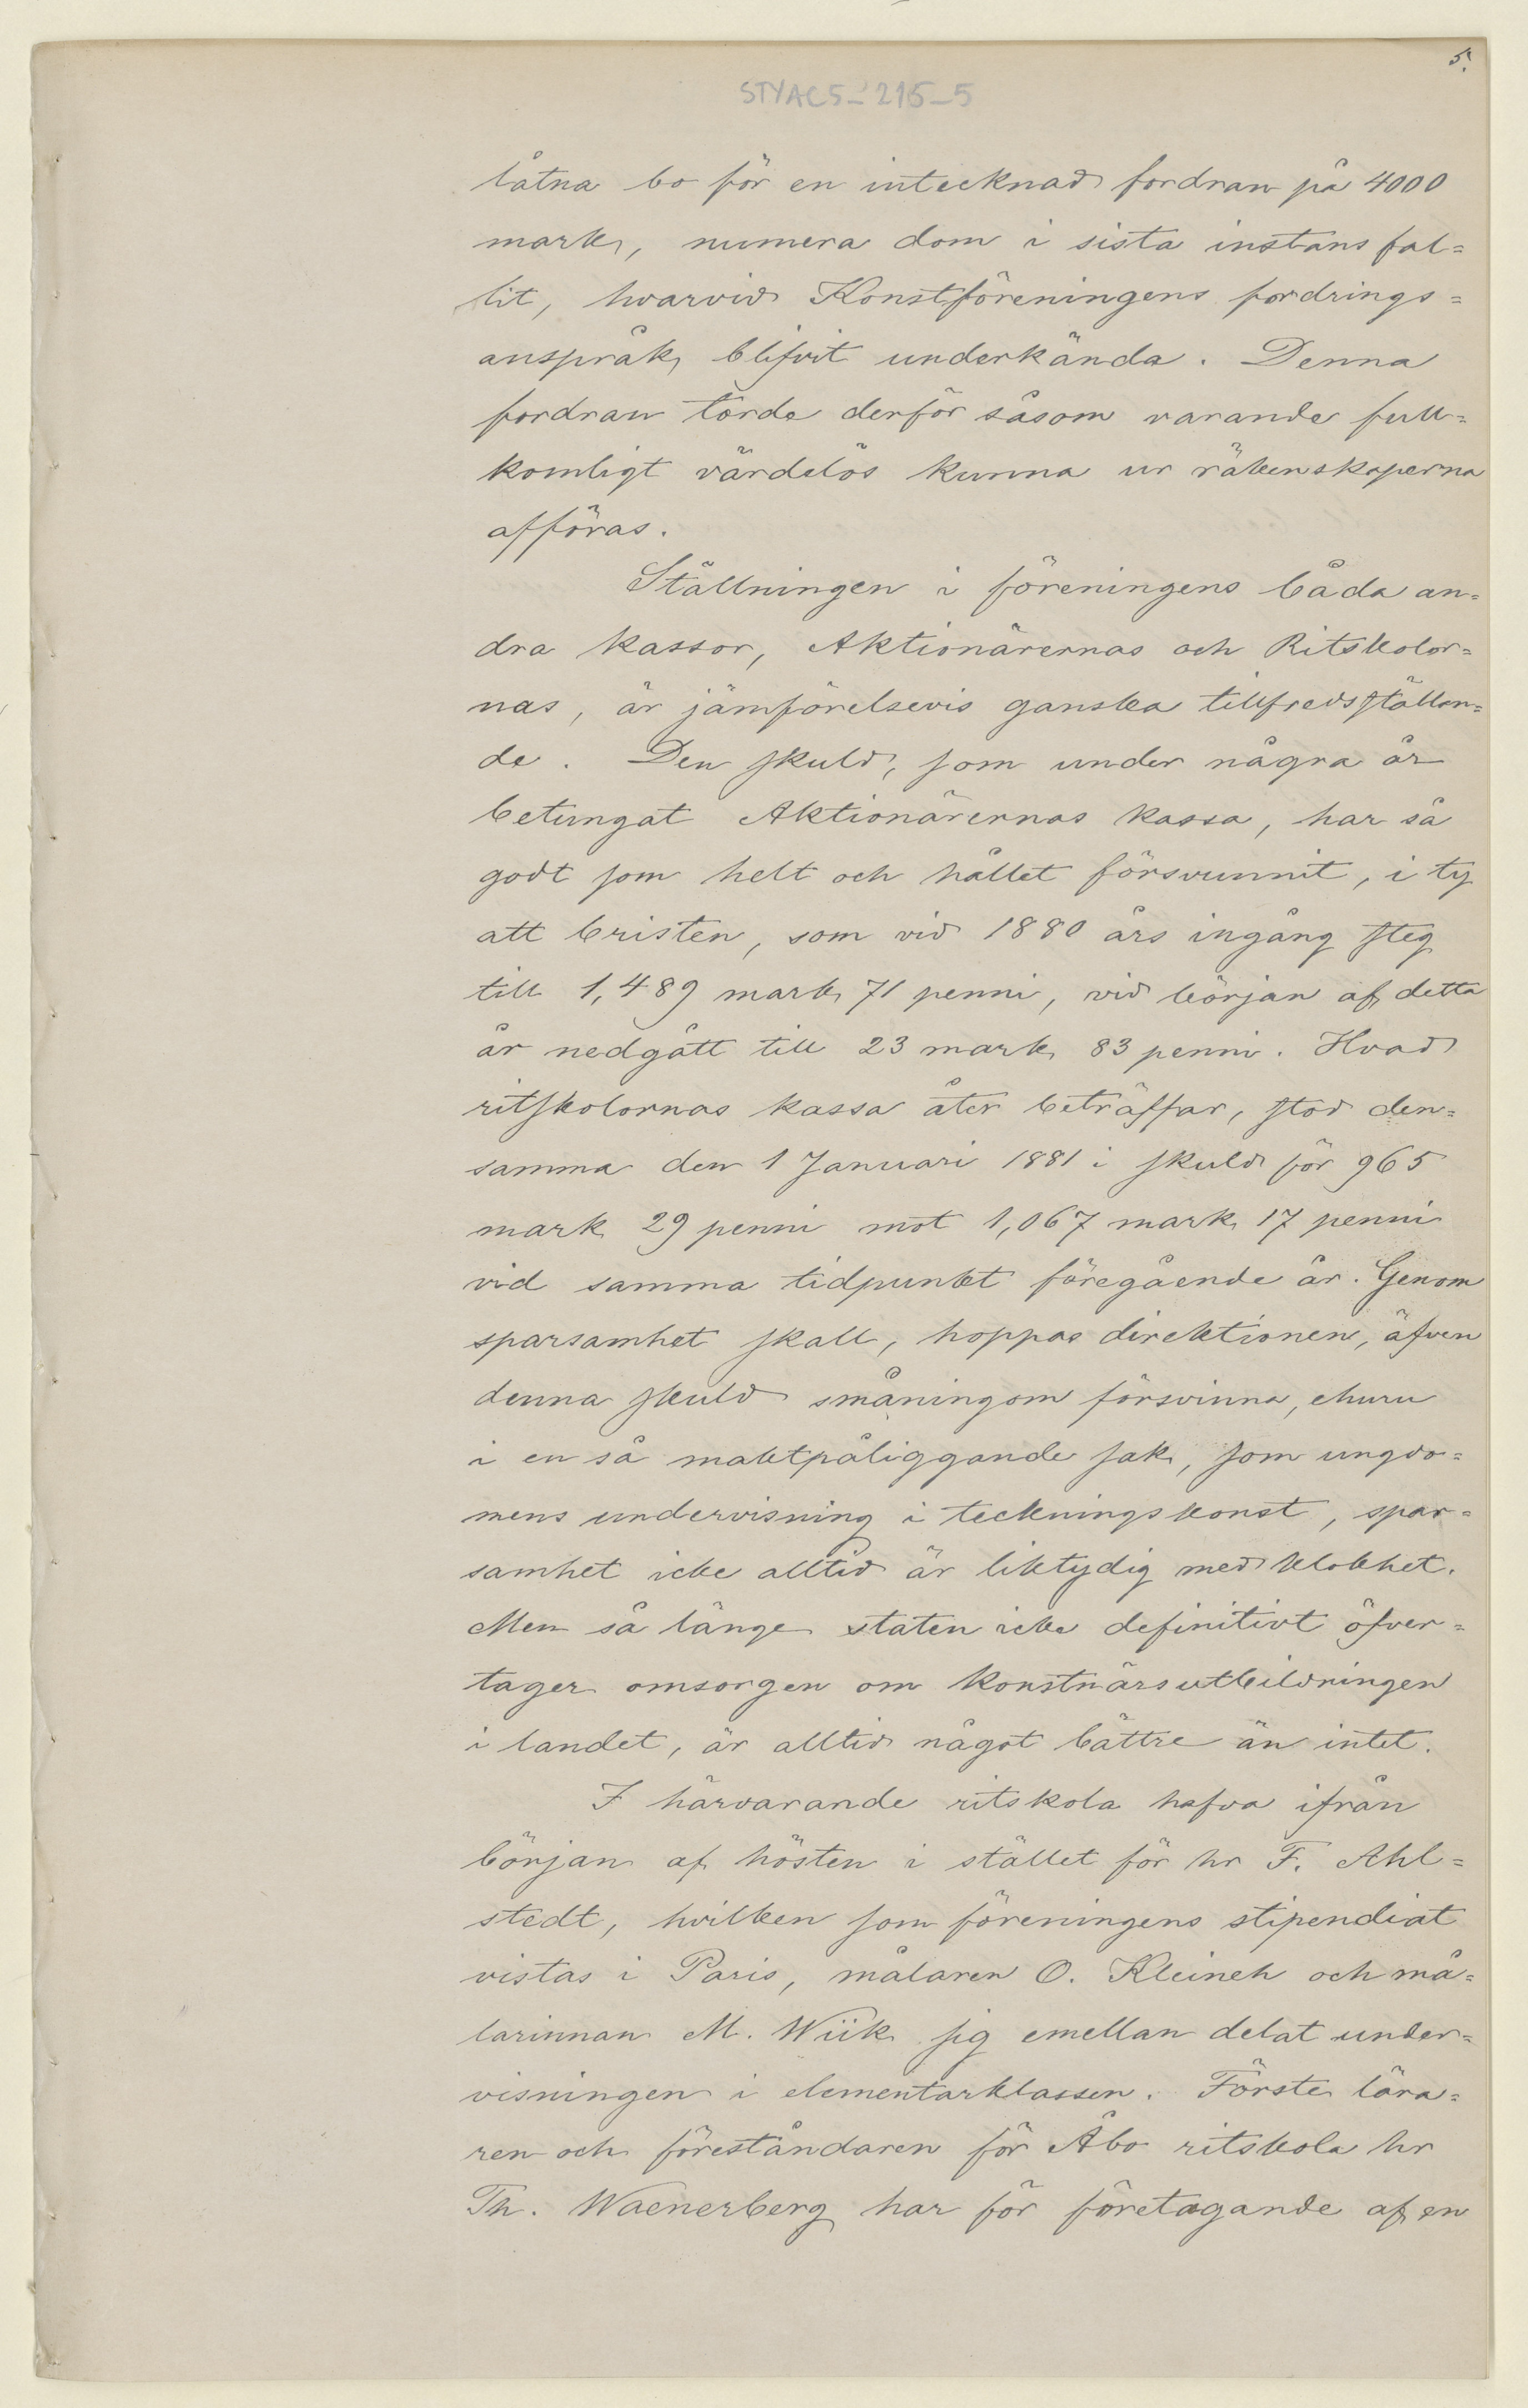 5.
STYAC5-215-5
låtna bo för en intecknad fordran på 4000
mark, numera dom i sista instans fal=
lit, hvarvid Konstföreningens fordrings=
anspråk blifvit underkända. Denna
fordran torde derför såsom varande full=
komligt värdelös kunna ur räkenskaperna
afföras.
Ställningen i föreningens båda an=
dra kassor, Aktionärernas och Ritskolor=
nas, är jämförelsevis ganska tillfredsställan=
de. Den skuld, som under några år
betungat Aktionärernas kassa, har så
godt som helt och hållet försvunnit, i ty
att bristen, som vid 1880 års ingång steg
till 1,489 mark 71 penni, vid början af detta
år nedgått till 23 mark 83 penni. Hvad
ritskolornas kassa åter beträffar, stod den=
samma den 1 Januari 1881 i skuld för 965
mark 29 penni mot 1,067 mark 17 penni
vid samma tidpunkt föregående år. Genom
sparsamhet skall, hoppas direktionen, äfven
denna skuld småningom försvinna, ehuru
i en så maktpåliggande sak, som ungdo=
mens undervisning i teckningskonst, spar=
samhet icke alltid är liktydig med klokhet.
Men så länge staten icke definitivt öfver=
tager omsorgen om konstnärsutbildningen
i landet, är alltid något bättre än intet.
I härvarande ritskola hafva ifrån
början af hösten i stället för hr F. Ahl=
stedt, hvilken som föreningens stipendiat
vistas i Paris, målaren O. Kleineh och må=
larinnan M. Wiik sig emellan delat under=
visningen i elementarklassen. Förste lära=
ren och föreståndaren för Åbo ritskola hr
Th. Waenerberg har för företagande af en